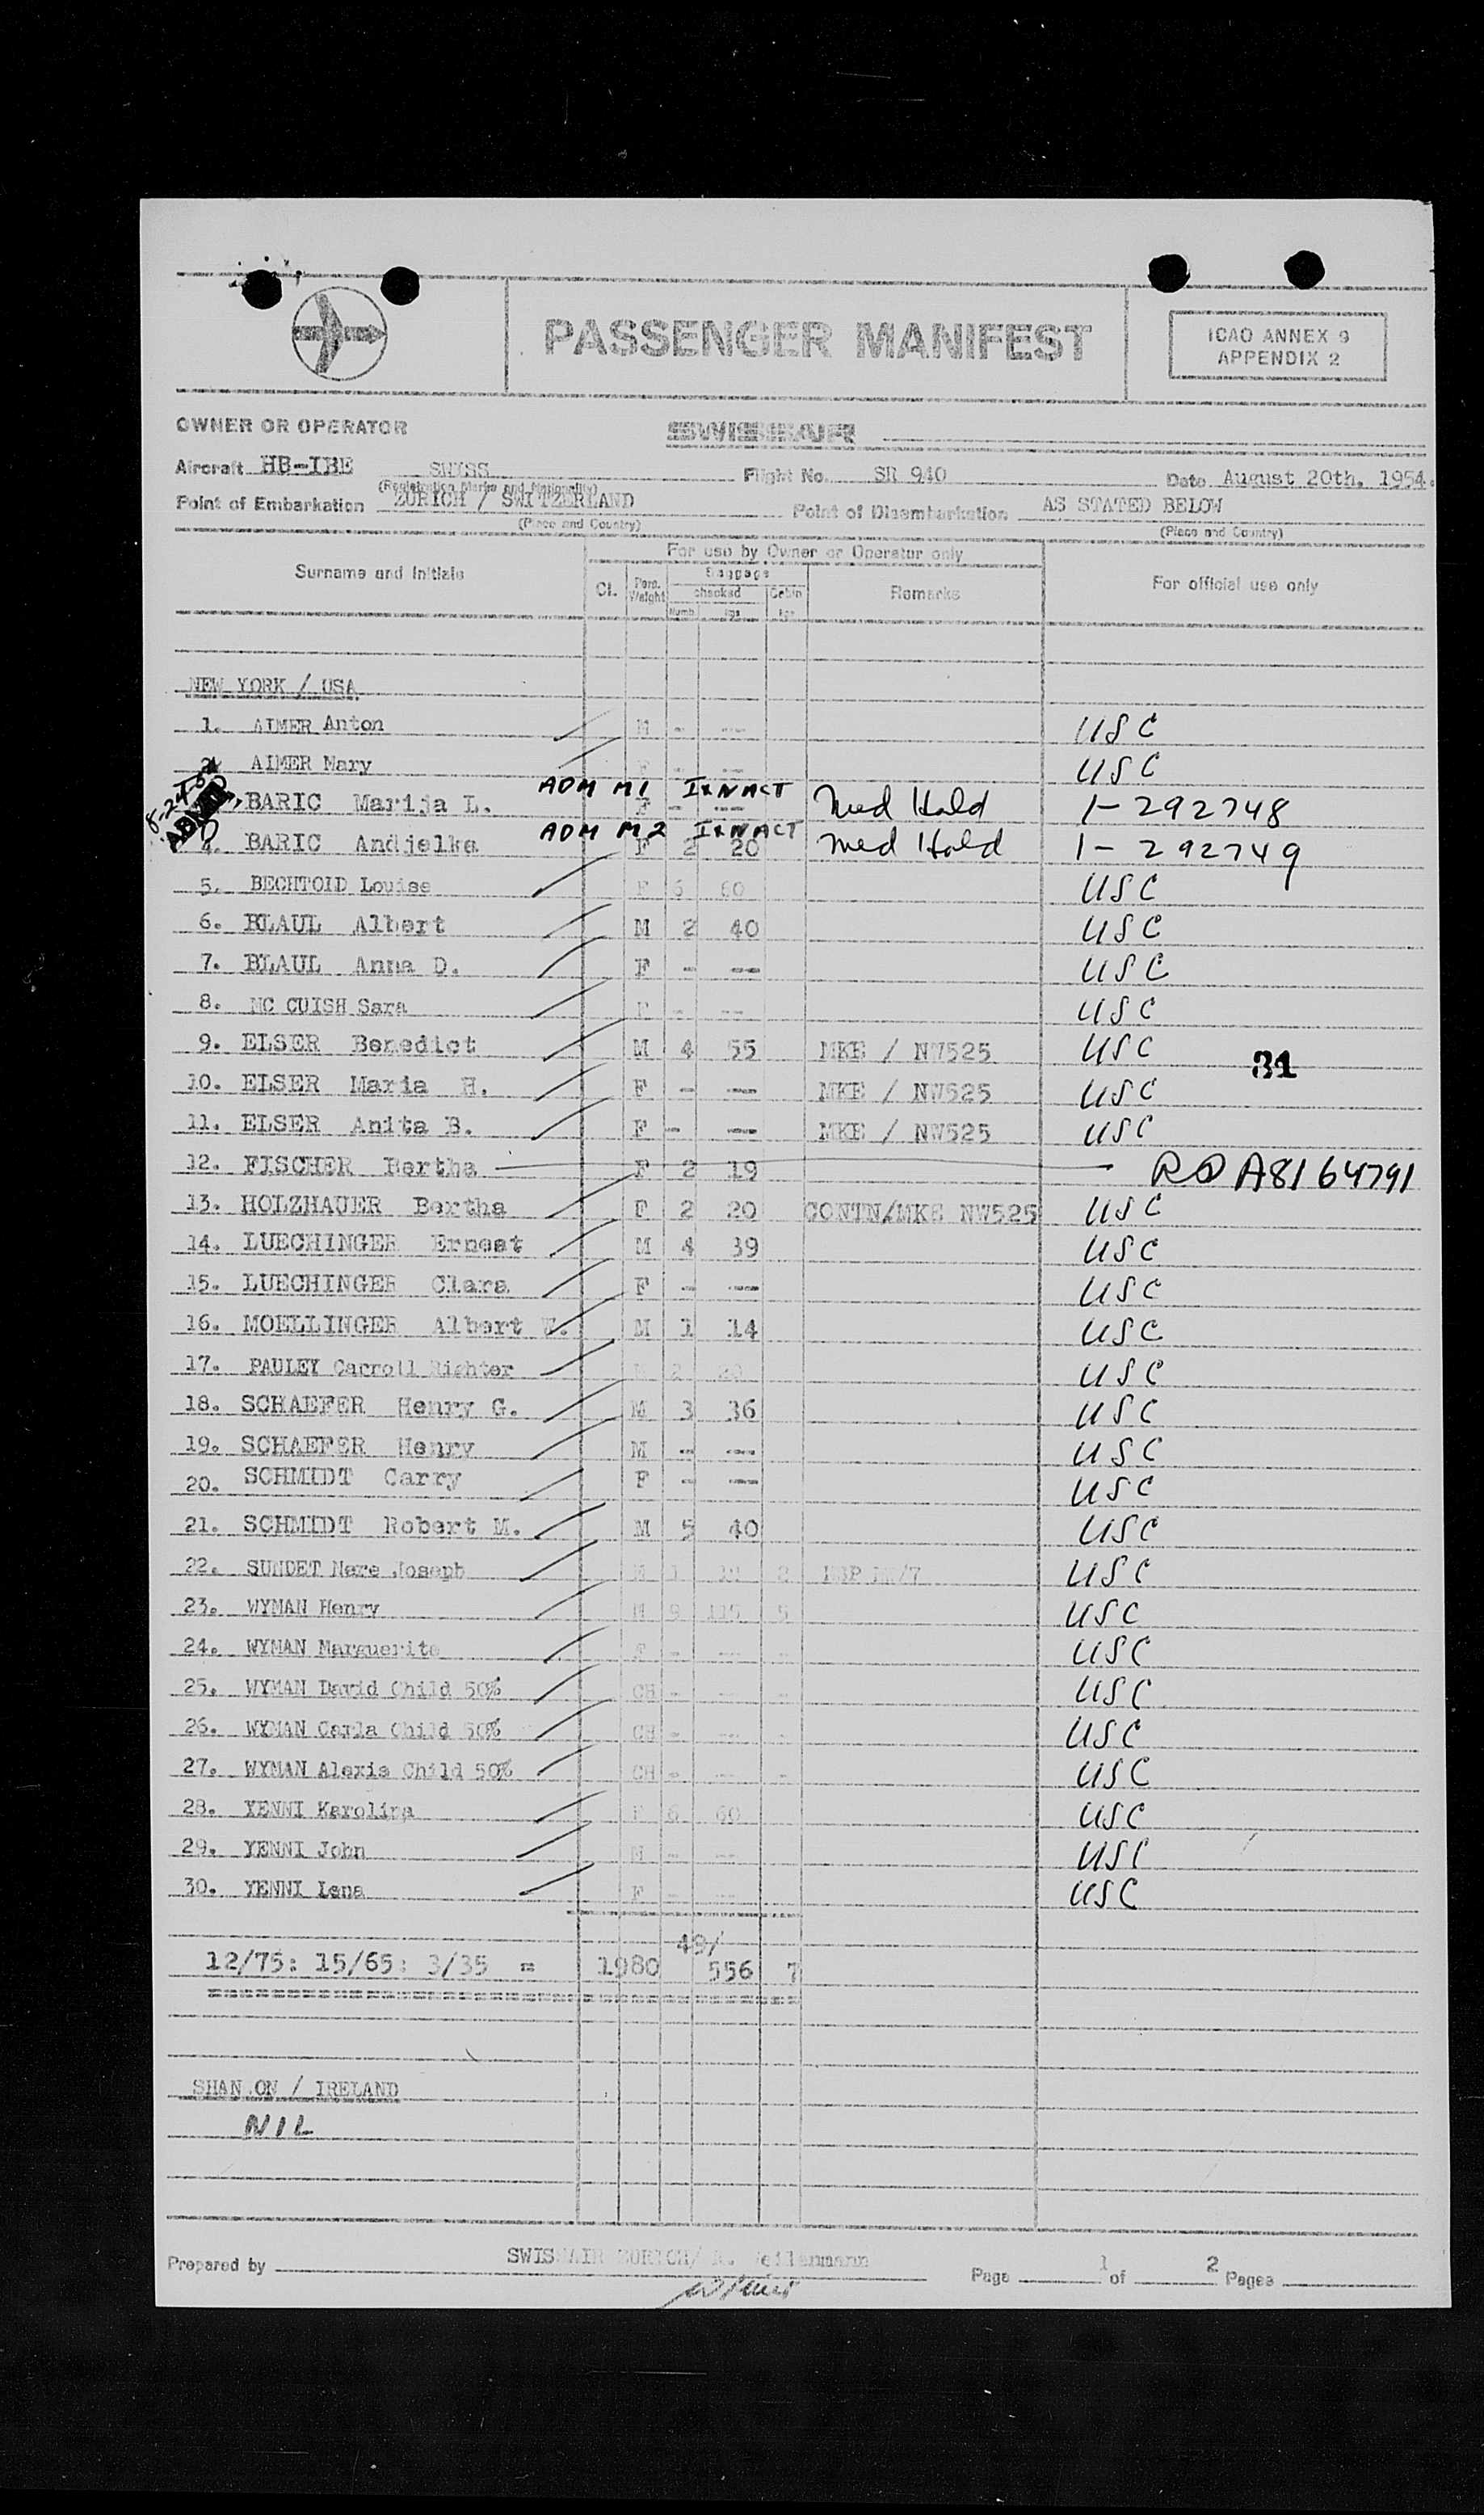 PASSENGER MANIFEST
ICAO ANNEX 9
APPENDIX 2
OWNER OR OPERATOR SWISSAIR
Aircraft HB-IBE SWISS Flight No. SR 940 Date August 20th, 1954.
(Registration Marks and Nationality)
Point of Embarkation ZURICH / SWITZERLAND Point of Disembarkation AS STATED BELOW
(Place and Country) (Place and Country)
For use by Owner or Operator only
Surname and Initials Cl. Pers. Weight Baggage checked Numb. kgs Cabin kgs Remarks For official use only
NEW YORK / USA
1. AIMER Anton M - -- USC
2. AIMER Mary F - -- USC
8-24-54 ADM M1 IXNACT
BARIC Marija L. F - -- Med Hold 1-292748
ADM M2 IXNACT
4. BARIC Andjelka F 2 20 Med Hold 1-292749
5. BECHTOLD Louise F 6 60 USC
6. BLAUL Albert M 2 40 USC
7. BLAUL Anna D. F - -- USC
8. MC CUISH Sara F - -- USC
9. ELSER Benedict M 4 55 MKE / NW525 USC
31
10. ELSER Maria H. F - -- MKE / NW525 USC
11. ELSER Anita B. F - -- MKE / NW525 USC
12. FISCHER Bertha F 2 19 A8164791
13. HOLZHAUER Bertha F 2 20 CONTN/MKE NW525 USC
14. LUECHINGER Ernest M 4 39 USC
15. LUECHINGER Clara F - -- USC
16. MOELLINGER Albert W. M 1 14 USC
17. PAULEY Carroll Righter M 2 20 USC
18. SCHAEFER Henry G. M 3 36 USC
19. SCHAEFER Henry M - -- USC
20. SCHMIDT Carry F - -- USC
21. SCHMIDT Robert M. M 5 40 USC
22. SUNDET Nere Joseph M 1 2 USC
23. WYMAN Henry M 9 115 5 USC
24. WYMAN Marguerite F - -- - USC
25. WYMAN David Child 50% CH - -- - USC
26. WYMAN Carla Child 50% CH - -- USC
27. WYMAN Alexis Child 50% CH - -- - USC
28. YENNI Karolina F 6 60 USC
29. YENNI John M - -- USC
30. YENNI Lena F - -- USC
49/
12/75: 15/65: 3/35 = 1980 556 7
SHANNON / IRELAND
NIL
Prepared by SWISSAIR ZURICH/ Weilenmann Page 1 of 2 Pages